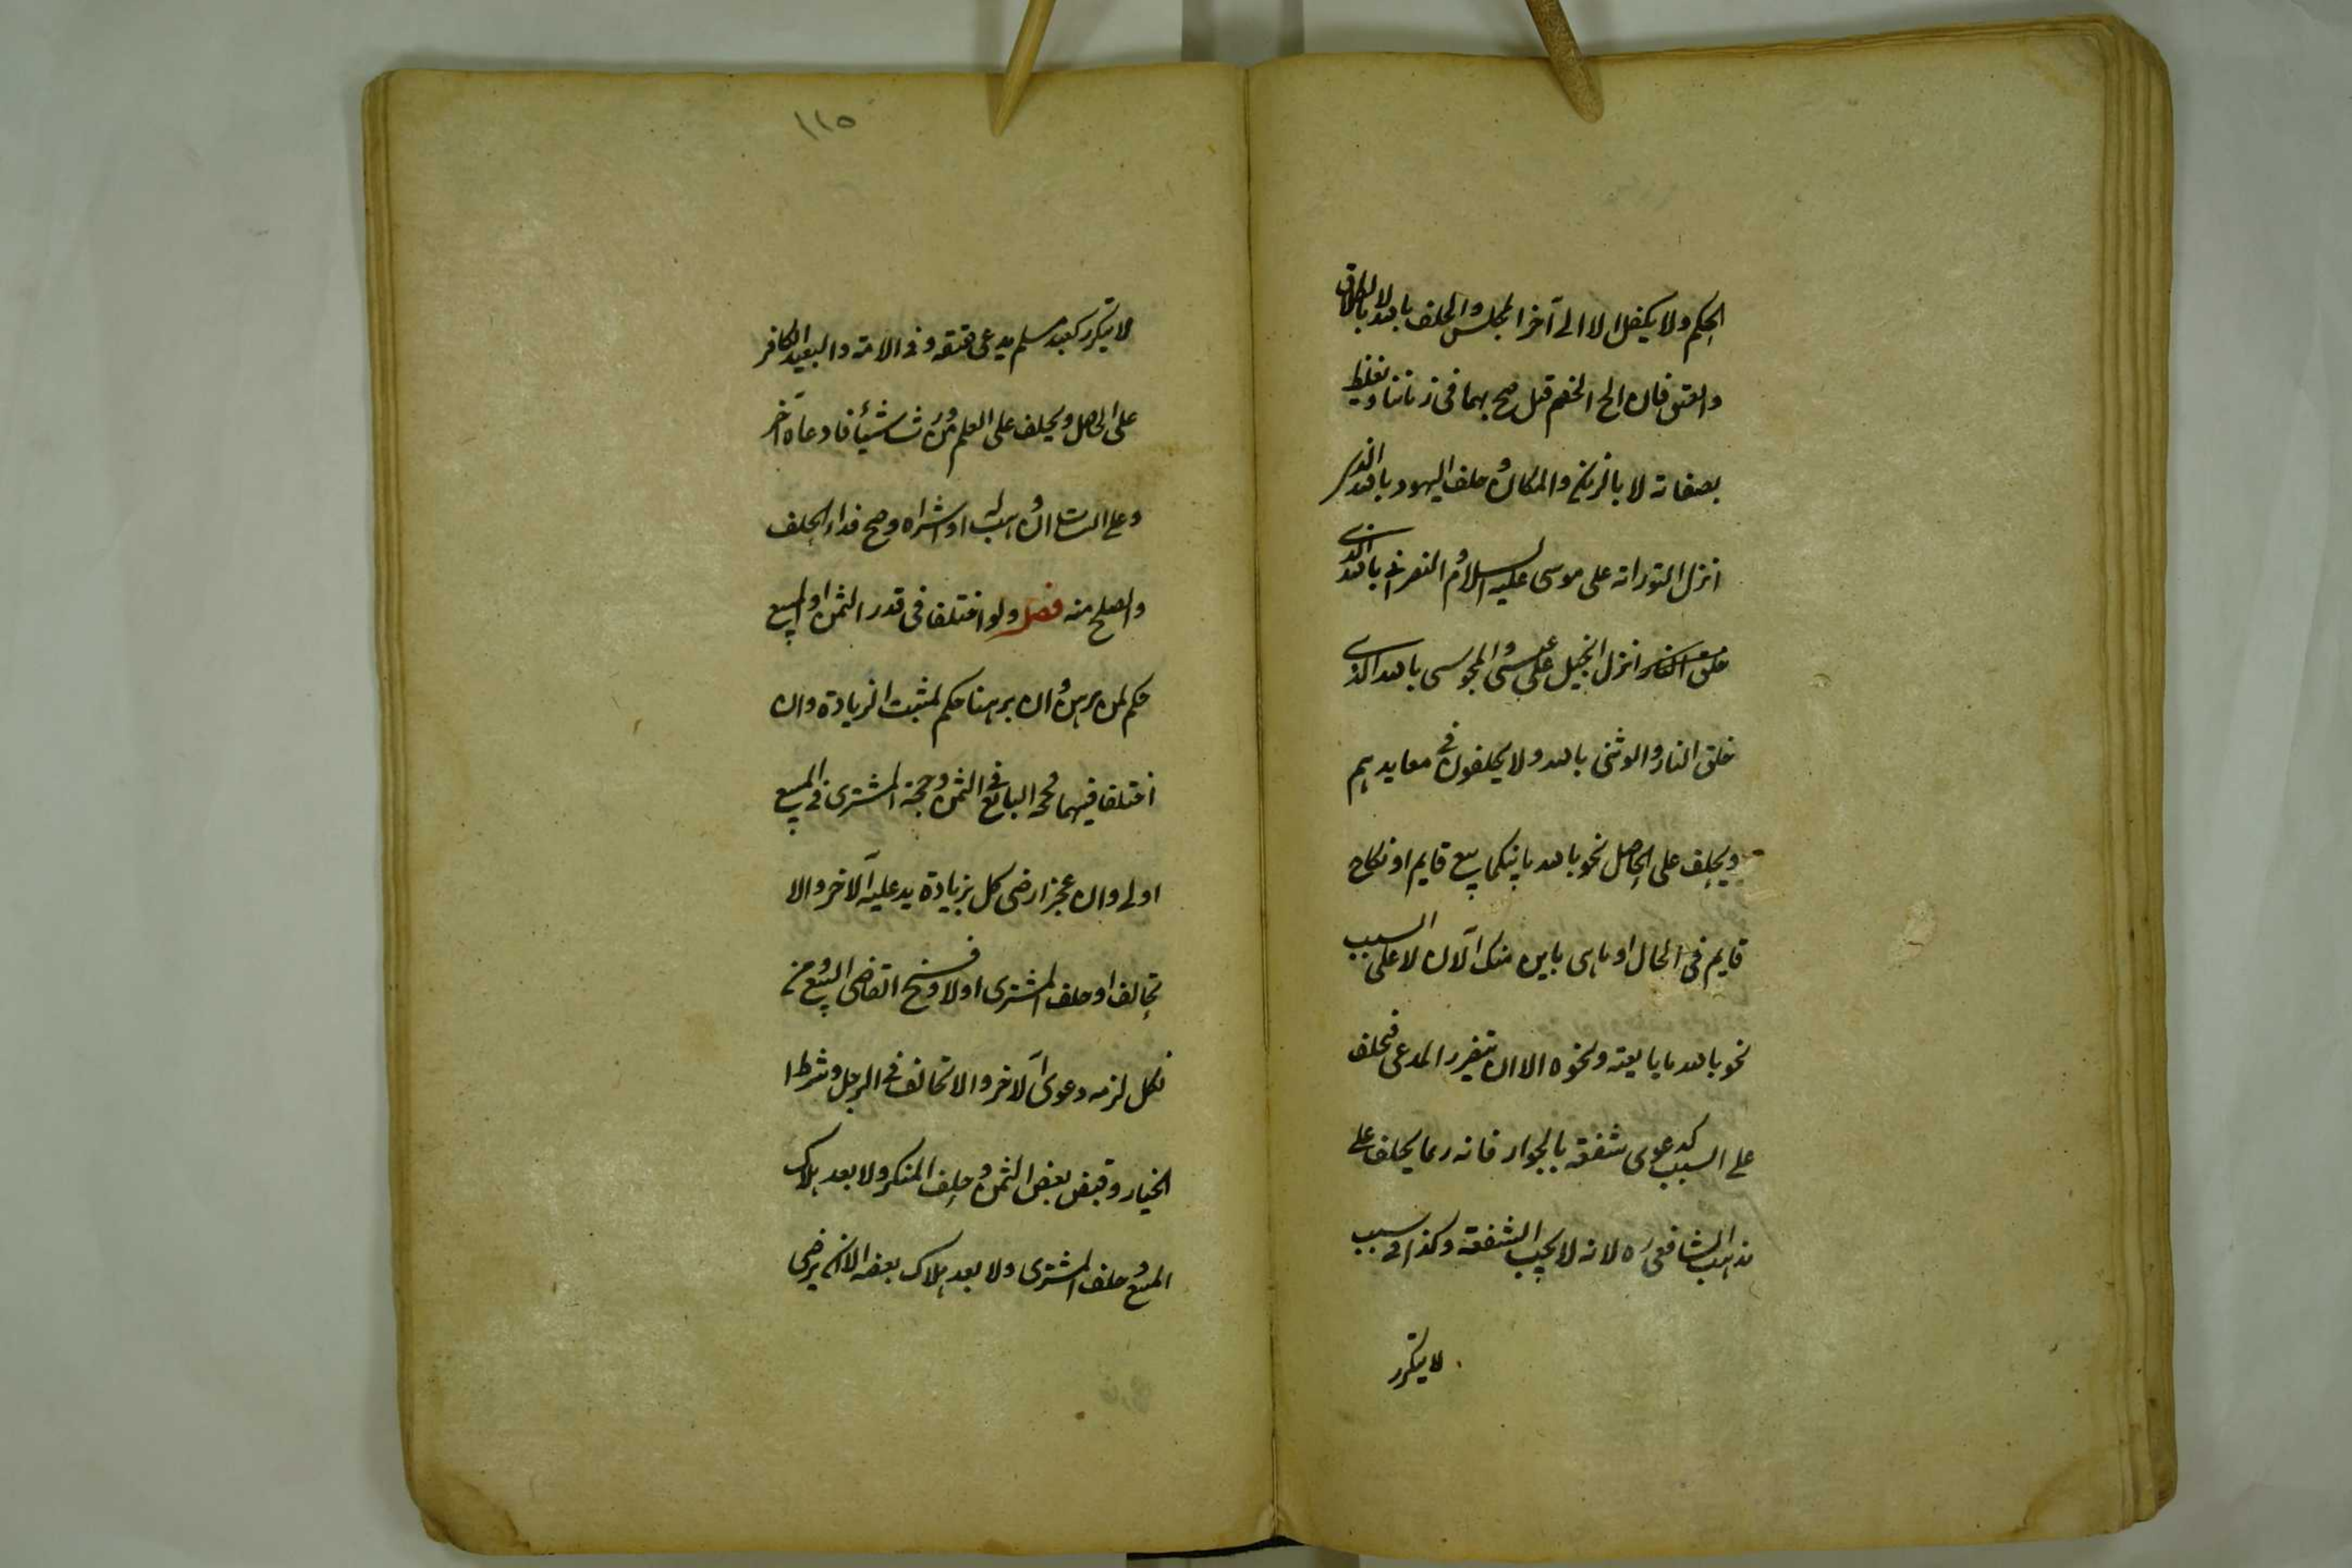 الحكم ولا يكفل الا الى آخر المجلس والحلف بالله لا بالطلاق
والعتق فان الح الخصم قيل صح بهما فى زماننا ويغلظ
بصفاته لا بالزمان والمكان وحلف اليهود بالله الذى
انزل التوراته على موسى عليه السلام والنصرانى بالله الذى
انزل انجيل على عيسى والمجوسى بالله الذى
خلق النار والوثنى بالله ولا يحلفون فى معابدهم
ويحلف على الحاصل نحو بالله ما بينكما بيع قايم او نكاح
قايم فى الحال او ما هى باين منك الآن لا على السبب
نحو بالله ما بايعته ونحوه الا ان يتضرر المدعى فيحلف
على السبب كدعوى شفعة بالجوار فانه ربما يحلف على
مذهب الشافعى ره لانه لا يجب الشفعة وكذا فى سبب
لا يتكرر
١١٥
لا يتكرر كعبد مسلم يدعى عتقه وفى الامة والعبد الكافر
على الحاصل ويحلف على العلم من ورث شيئا فادعاه آخر
وعلى البتات ان وهب له او شراه وصح فداء الحلف
والصلح منه فصل ولو اختلفا فى قدر الثمن او المبيع
حكم لمن برهن وان برهنا حكم لمثبت الزيادة وان
اختلفا فيهما فحجة البائع فى الثمن وحجة المشترى فى المبيع
اولى وان عجزا رضى كل بزيادة يدعليه الآخر والا
تحالفا وحلف المشترى اولا وفسخ القاضى البيع ومن
نكل لزمه دعوى الآخر ولا تحالف فى الاجل وشرط
الخيار وقبض بعض الثمن وحلف المنكر ولا بعد هلاك
المبيع وحلف المشترى ولا بعد هلاك بعضه الا ان يرضى